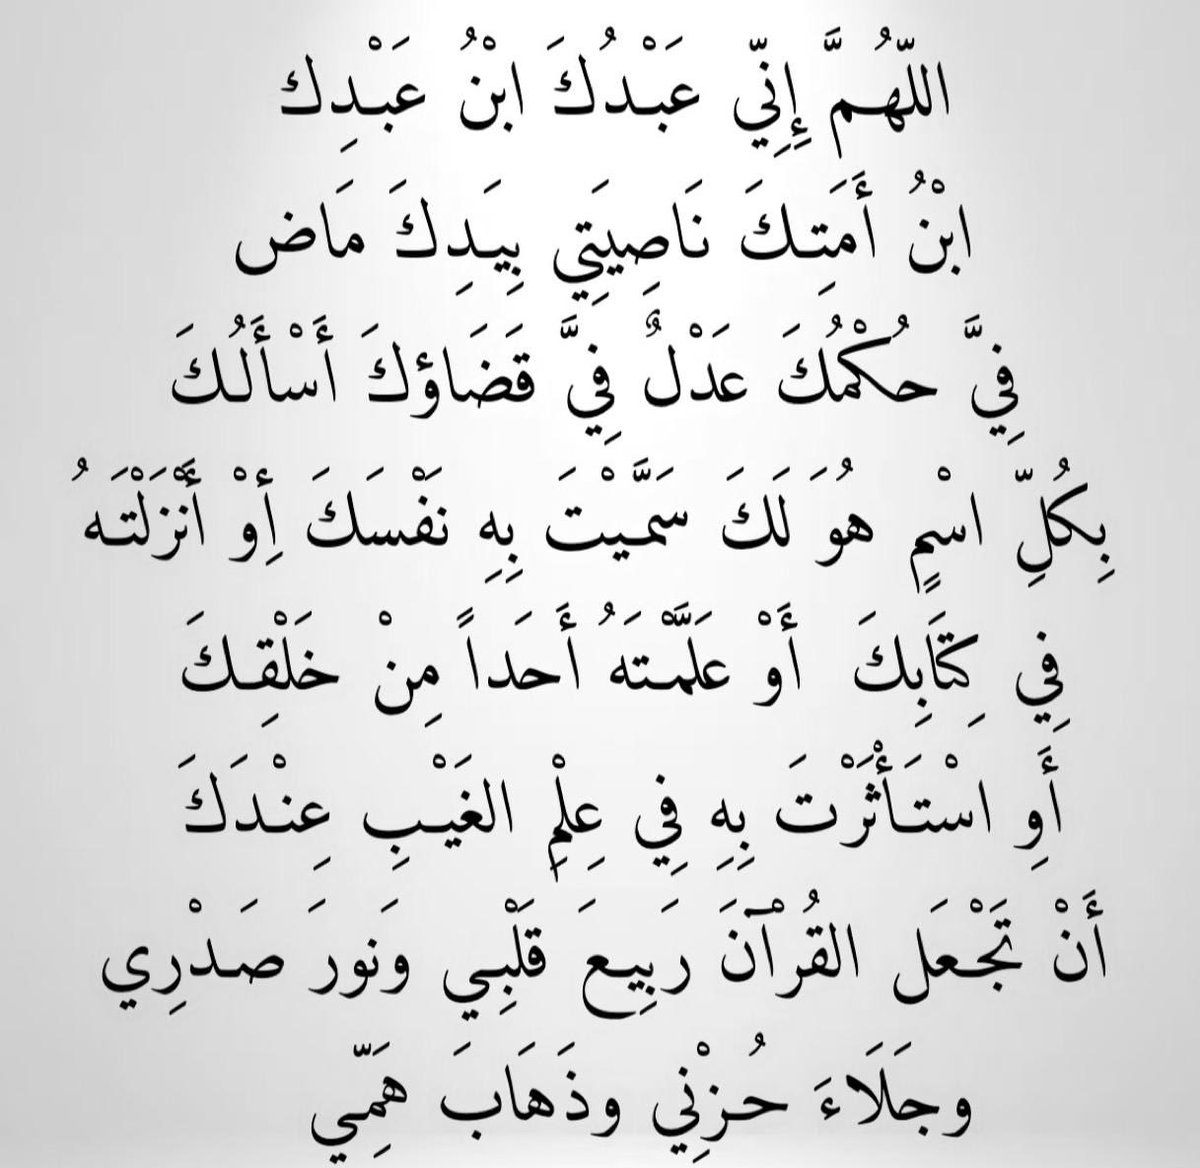 اللّهُمَّ إِنِّي عَبْدُكَ ابْنُ عَبْدِك
ابْنُ أَمَتِكَ نَاصِيَتِي بِيَدِكَ مَاض
فِيَّ حُكْمُكَ عَدْلٌ فِيَّ قَضَاؤكَ أَسْأَلُكَ
بِكُلِّ اسْمٍ هُوَ لَكَ سَمَّيْتَ بِهِ نَفْسَكَ أِوْ أَنْزَلْتَهُ
فِي كِتَابِكَ أَوْ عَلَّمْتَهُ أَحَداً مِنْ خَلْقِكَ
أَوِ اسْتَأْثَرْتَ بِهِ فِي عِلْمِ الغَيْبِ عِنْدَكَ
أَنْ تَجْعَل القُرْآنَ رَبِيعَ قَلْبِي وَنورَ صَدْرِي
وجَلَاءَ حُزْنِي وذَهَابَ هَمِّي